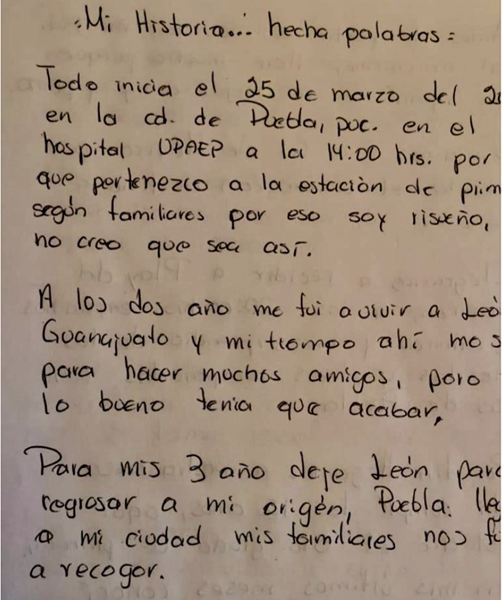 ·Mi Historia...· hecha palabras:
Todo inicia el 25 de marzo del 2
en la cd. de Puebla, puc. en el
hospital UPAEP a la 14:00 hrs. por
que pertenezco a la estación de prim
según familiares por eso soy risueño,
no creo que sea así.
A los dos año me fui a vivir a Leó
Guanajuato y mi tiempo ahí me s
para hacer muchos amigos, pero
lo bueno tenia que acabar,
Para mis 3 año deje León para
regresar a mi origén, Puebla. lle
a mi ciudad mis familiares nos f
a recoger.